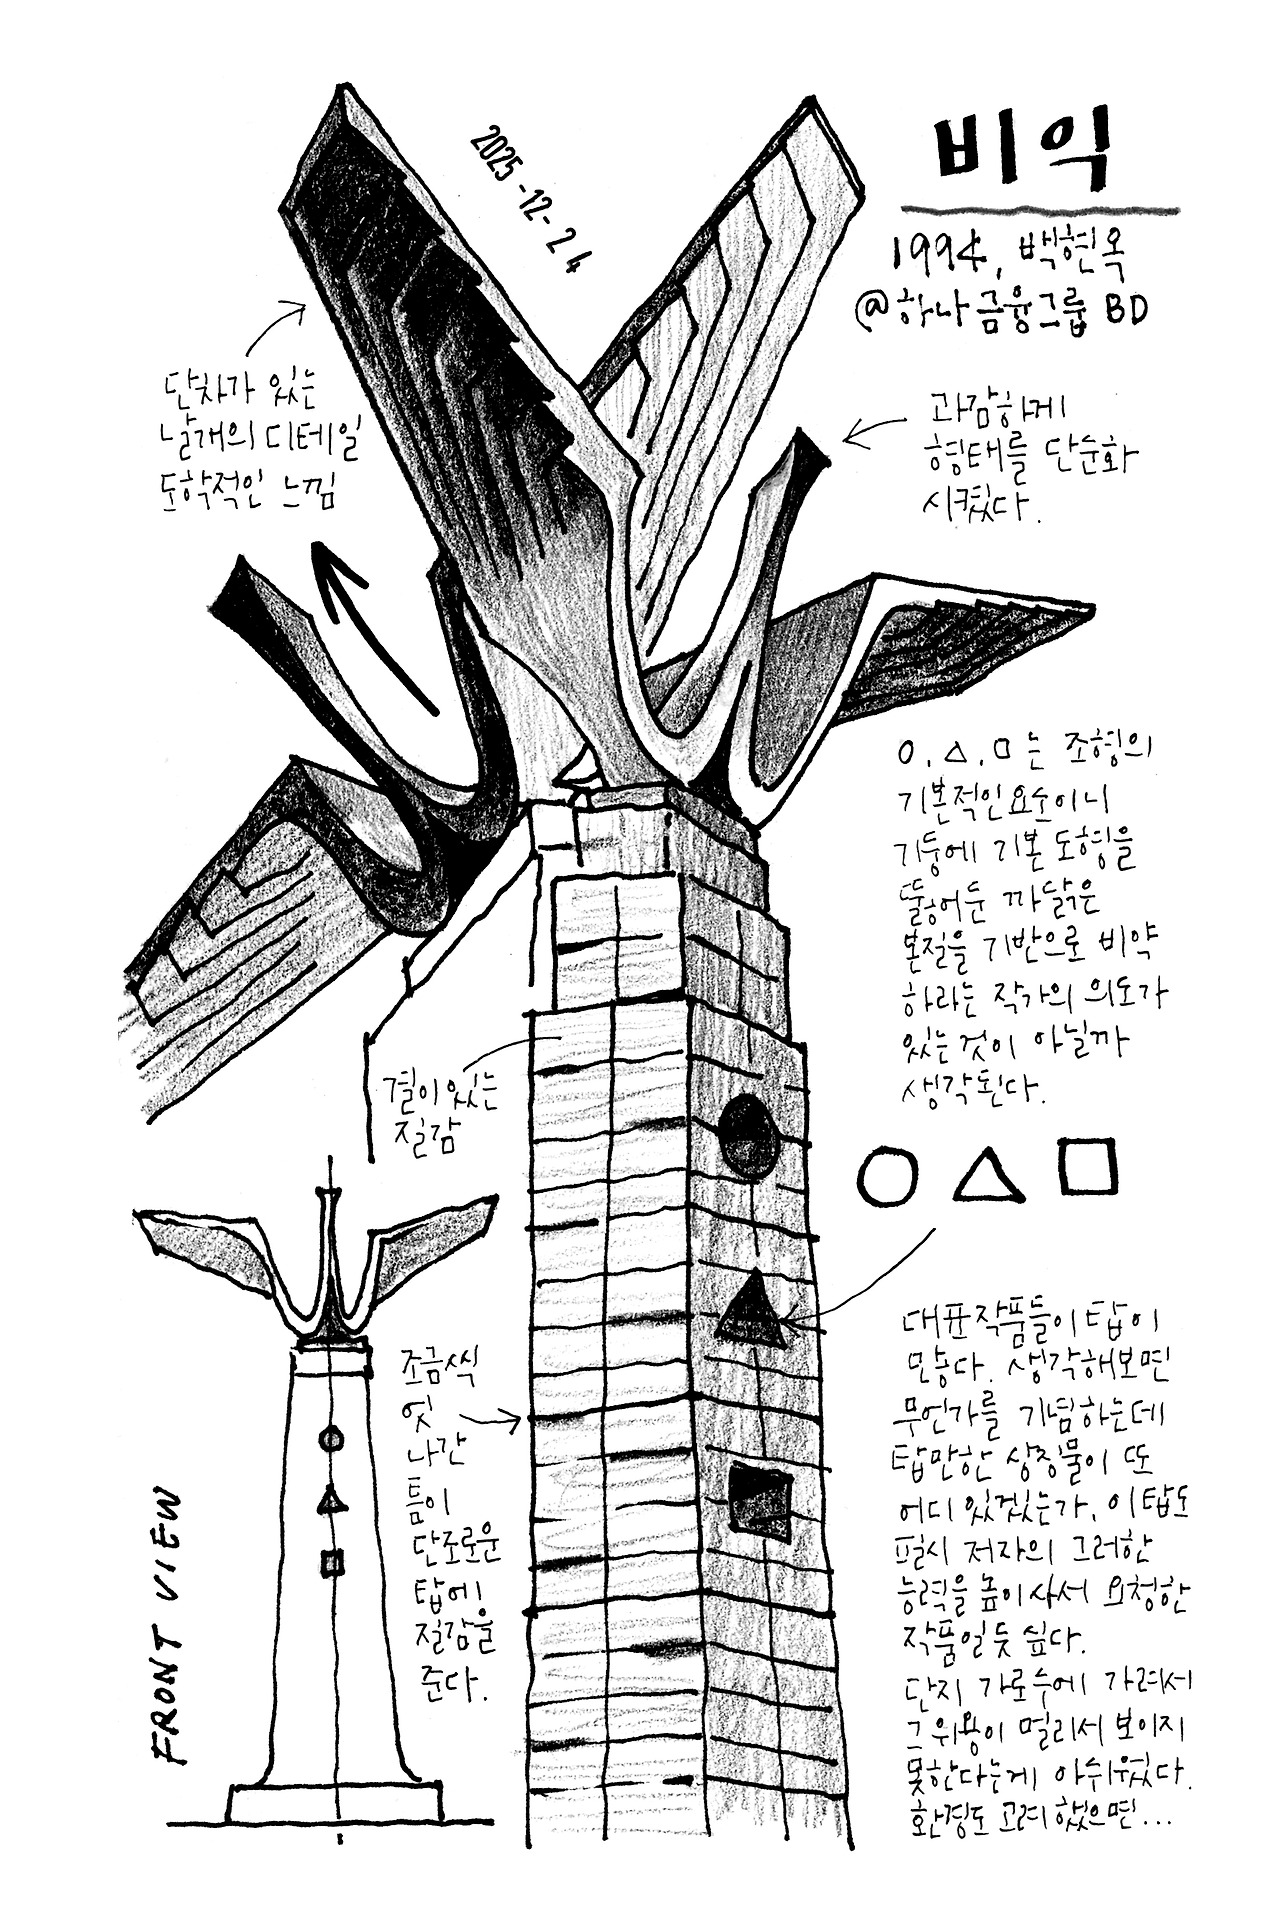 비익
1994, 백현옥
@하나금융그룹 BD
2025-12-24
단차가 있는
날개의 디테일
도학적인 느낌
과감하게
형태를 단순화
시켰다.
O, △, □는 조형의
기본적인 요소이니
기둥에 기본 도형을
뚫어둔 까닭은
본질을 기반으로 비약
하라는 작가의 의도가
있는 것이 아닐까
생각된다.
결이 있는
질감
조금씩
엇
나간
틈이
단조로운
탑에
질감을
준다.
FRONT VIEW
대표작품들이 탑이
많다. 생각해보면
무언가를 기념하는데
탑만한 상징물이 또
어디 있겠는가. 이 탑도
필시 저자의 그러한
능력을 높이 사서 요청한
작품일 듯 싶다.
단지 가로수에 가려서
그 위용이 멀리서 보이지
못한다는게 아쉬웠다.
환경도 고려했으면...